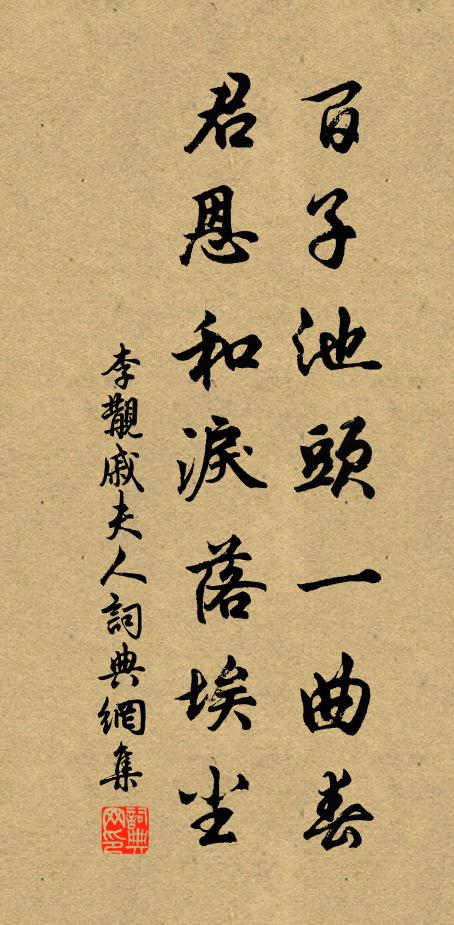 百子池頭一曲春
君恩和淚落埃尘
李觀戚夫人詞典網集
詞典网印